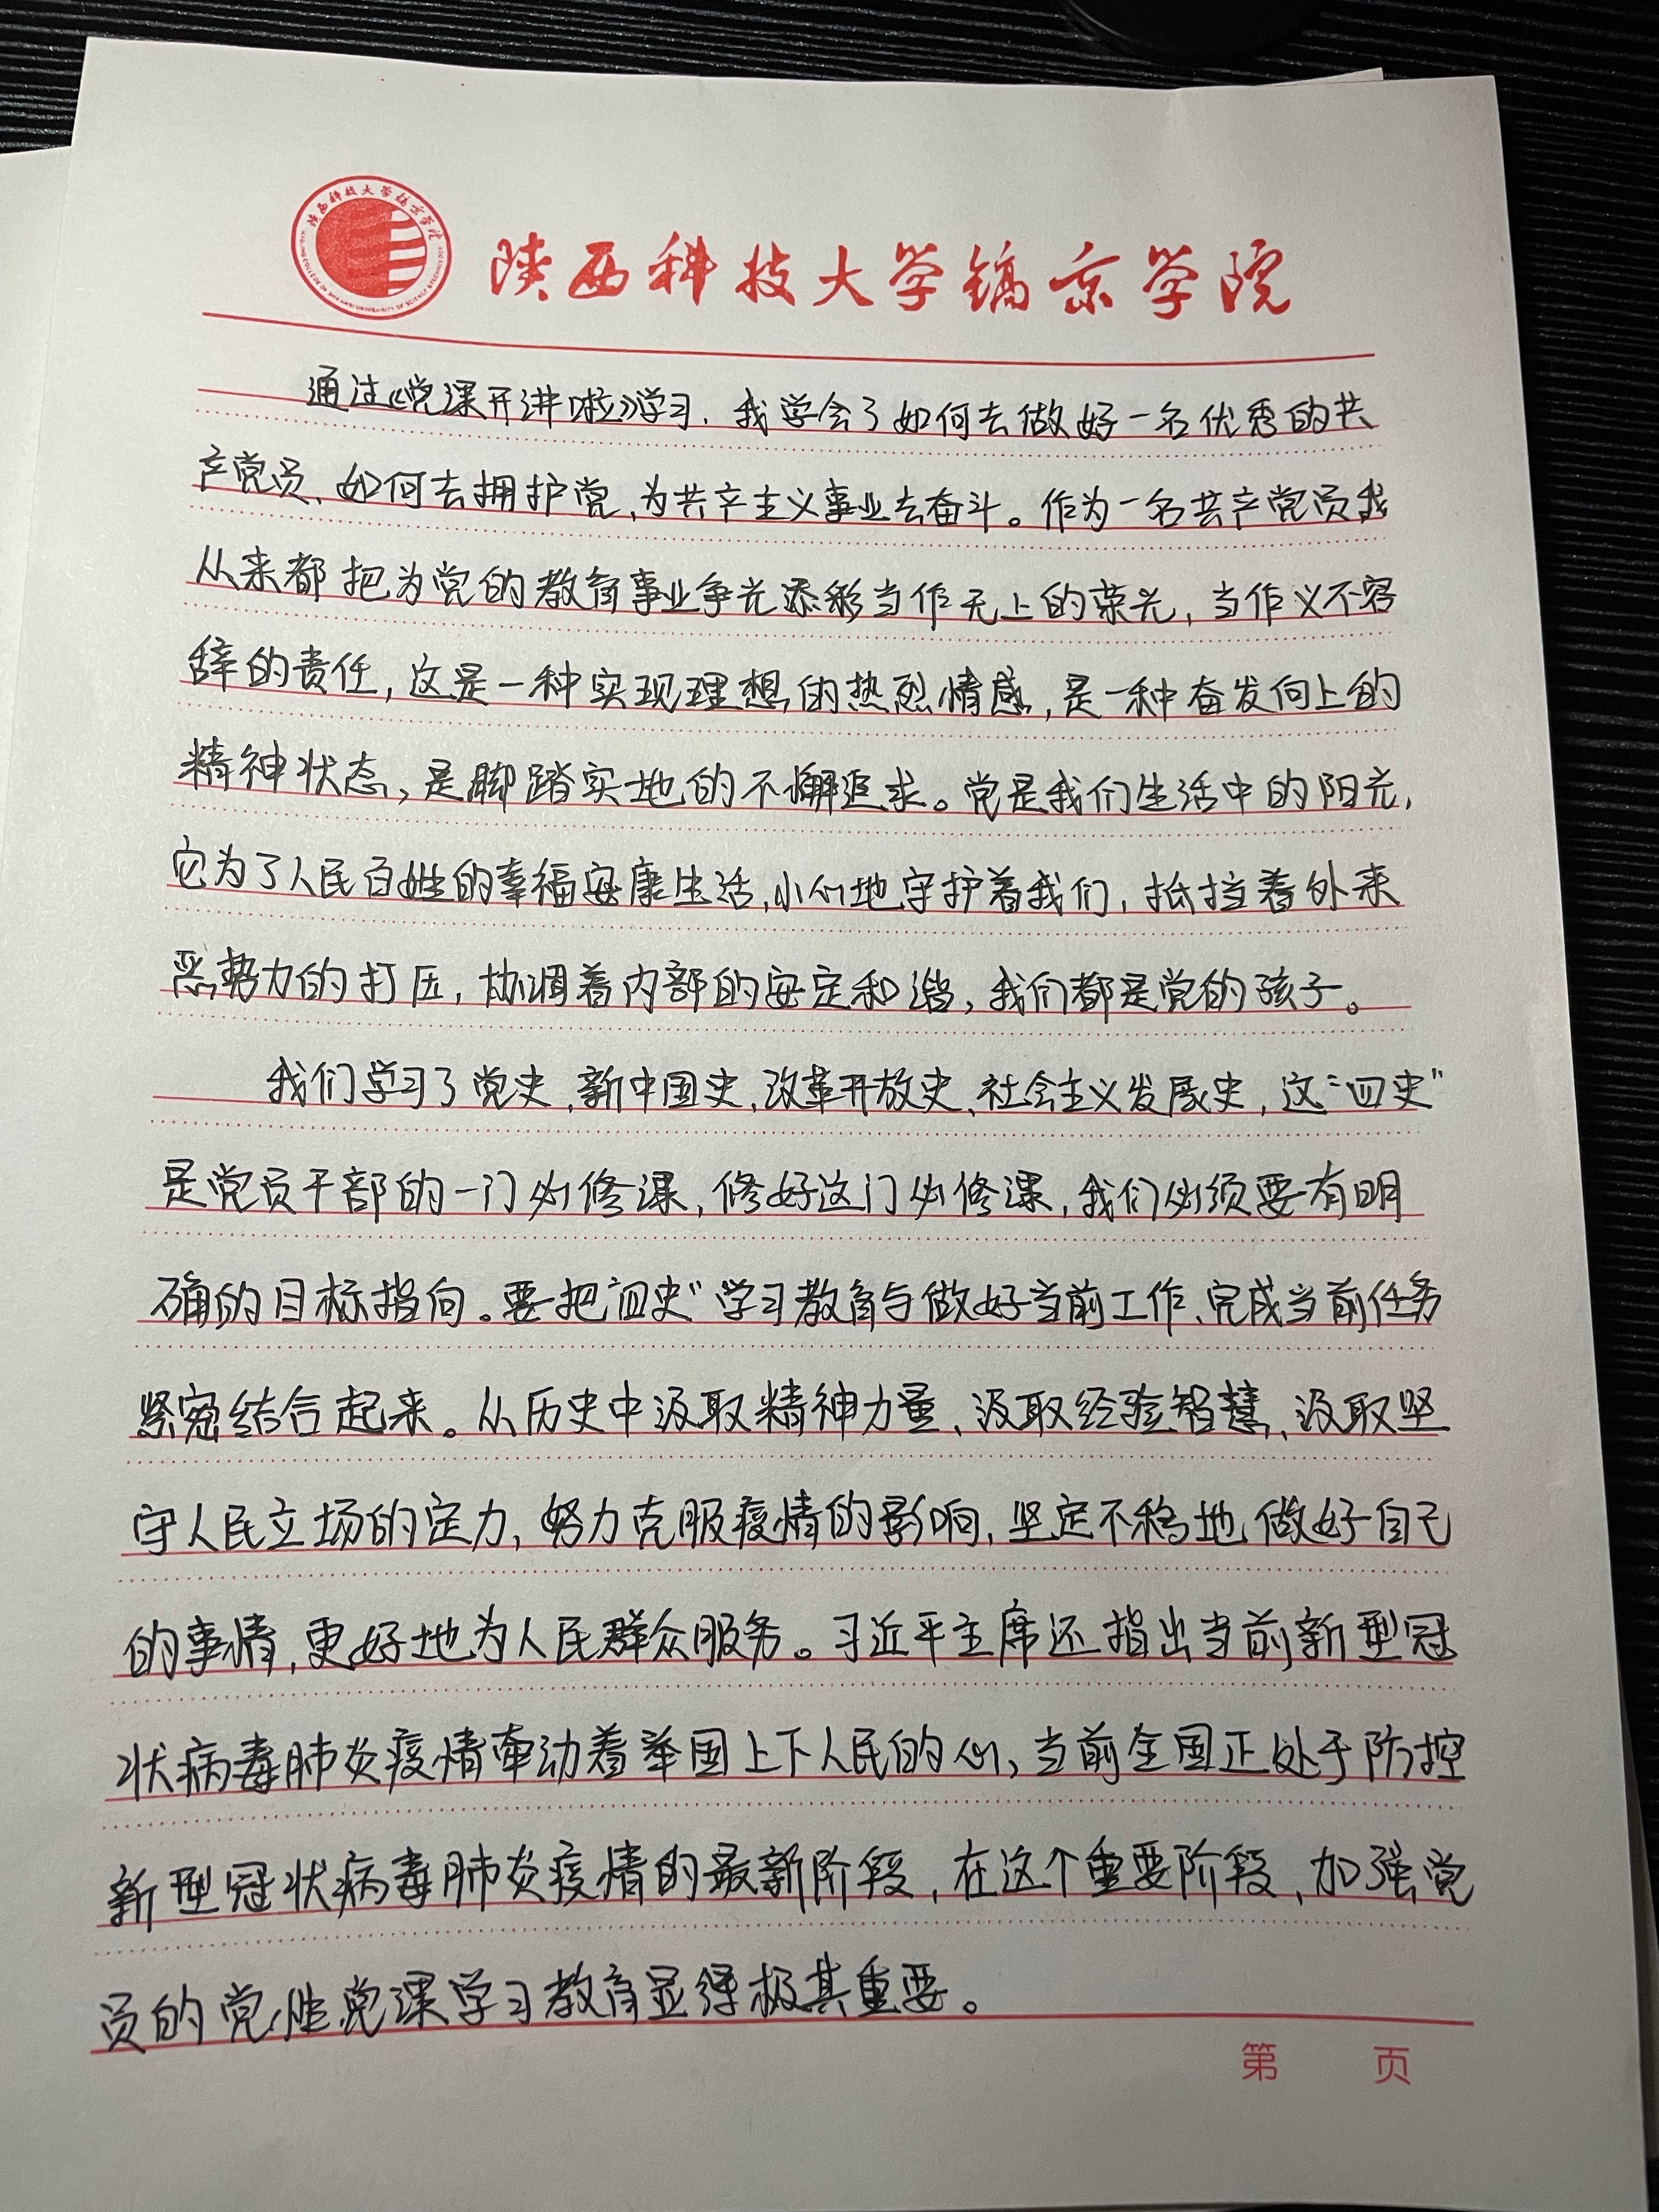 陕西科技大学镐京学院
陕西科技大学镐京学院
通过《党课开讲啦》学习，我学会了如何去做好一名优秀的共
产党员、如何去拥护党、为共产主义事业去奋斗。作为一名共产党员我
从来都把为党的教育事业争光添彩当作无上的荣光，当作义不容
辞的责任，这是一种实现理想的热烈情感，是一种奋发向上的
精神状态，是脚踏实地的不懈追求。党是我们生活中的阳光，
它为了人民百姓的幸福安康生活，小心地守护着我们，抵挡着外来
恶势力的打压，协调着内部的安定和谐，我们都是党的孩子。
我们学习了党史、新中国史、改革开放史、社会主义发展史，这“四史”
是党员干部的一门必修课，修好这门必修课，我们必须要有明
确的目标指向。要把“四史”学习教育与做好当前工作、完成当前任务
紧密结合起来。从历史中汲取精神力量、汲取经验智慧、汲取坚
守人民立场的定力，努力克服疫情的影响，坚定不移地做好自己
的事情，更好地为人民群众服务。习近平主席还指出当前新型冠
状病毒肺炎疫情牵动着举国上下人民的心，当前全国正处于防控
新型冠状病毒肺炎疫情的最新阶段，在这个重要阶段、加强党
员的党性党课学习教育显得极其重要。
第 页